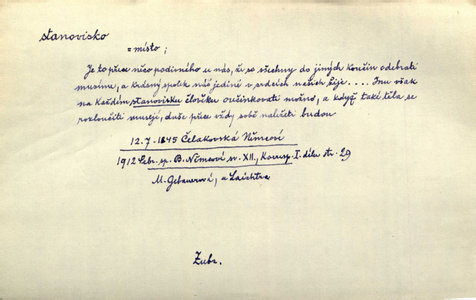 stanovisko
= místo;
Je to přece něco podivného u nás, že se všechny do jiných končin odebrati
musíme, a krásný spolek náš jedině v srdcích našich žije.... Inu však
na každém stanovisku člověku oučinkovati možno, a když také těla se
rozloučiti musejí, duše přece vždy sobě náležeti budou
12.7.1845 Čelakovská Němcové
1912 Sebr. sp. B. Němcové sv. XII, Koresp. I. dílu str. 29
M. Gebauerová, a Laichtra
Zubr.